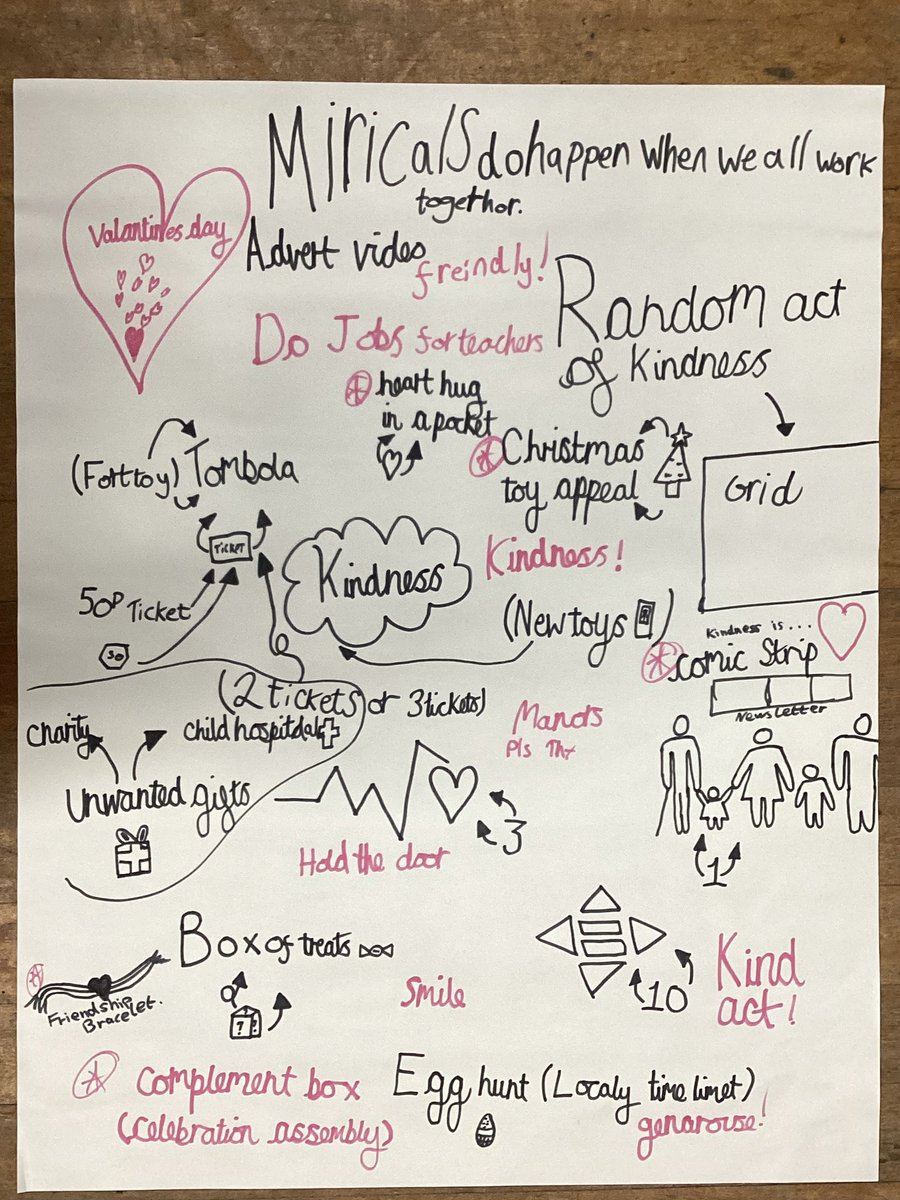 MIRICalS do happen when we all work
togethor.
Valantines day
Advert video
freindly!
Do Jobs for teachers
Random act
of Kindness
heart hug
in a pocket
Christmas
toy appeal
(For ttoy) Tombola
Grid
TICKET
Kindness
Kindness!
50P Ticket
50
(New toys)
Kindness is...
comic Strip
Newsletter
(2 tickets or 3 tickets)
Manors
Pls Thx
charity
child hospital
Unwanted gifts
3
1
Hold the door
Box of treats
? ?
Friendship
Bracelet.
Smile
10
Kind
act!
complement box
(celebration assembly)
Egg hunt (Localy time limet)
genarouse!